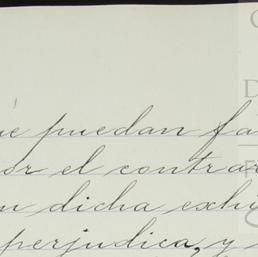 ue puedan fa
or el contrar
n dicha exhi
perjudica, y